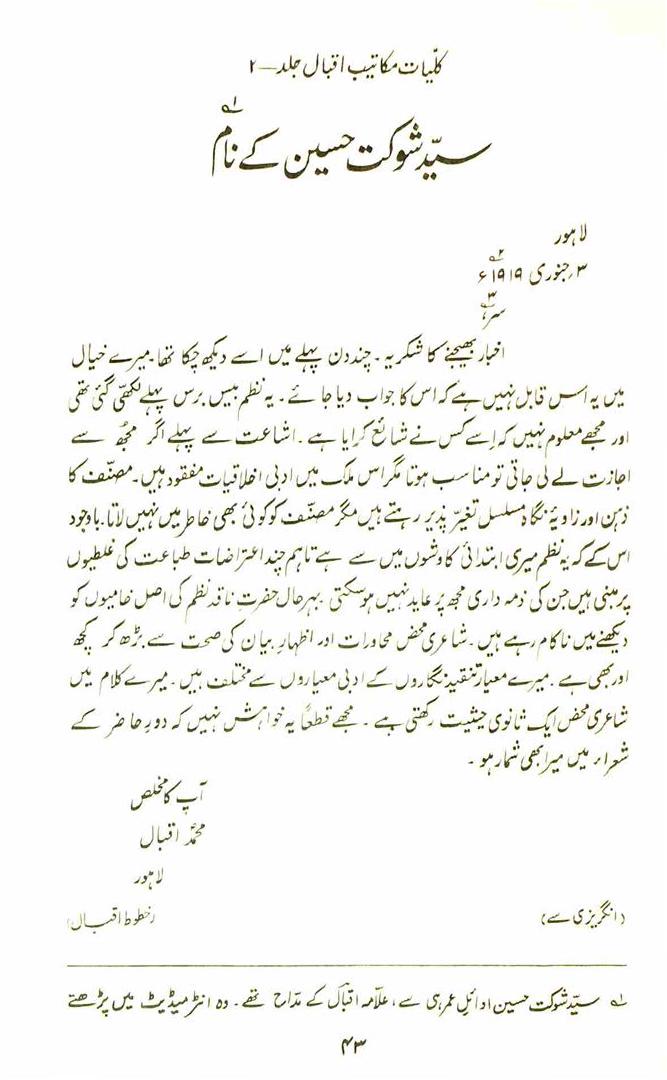 کلّیات مکاتیب اقبال جلد ۔ ۲
سیّد شوکت حسین کے نام ؎۱
لاہور
۳؍جنوری ۱۹۱۹ ؎۲ ء
سر؎۳
اخبار بھیجنے کا شکریہ ۔ چند دن پہلے میں اسے دیکھ چکا تھا۔ میرے خیال
میں یہ اس قابل نہیں ہے کہ اس کا جواب دیا جائے ۔ یہ نظم بیس برس پہلے لکھی گئی تھی
اور مجھے معلوم نہیں کہ اِسے کس نے شائع کرایا ہے ۔ اشاعت سے پہلے اگر مجھ سے
اجازت لے لی جاتی تو مناسب ہوتا مگر اس ملک میں ادبی اخلاقیات مفقود ہیں ۔ مصنّف کا
ذہن اور زاویۂ نگاہ مسلسل تغیّر پذیر رہتے ہیں مگر مصنّف کو کوئی بھی خاطر میں نہیں لاتا۔ باوجود
اس کے کہ یہ نظم میری ابتدائی کاوشوں میں سے ہے تاہم چند اعتراضات طباعت کی غلطیوں
پر مبنی ہیں جن کی ذمہ داری مجھ پر عاید نہیں ہوسکتی ۔ بہرحال حضرتِ ناقد نظم کی اصل خامیوں کو
دیکھنے میں ناکام رہے ہیں ۔ شاعری محض محاورات اور اظہارِ بیان کی صحت سے بڑھ کر کچھ
اور بھی ہے ۔ میرے معیار تنقید نگاروں کے ادبی معیاروں سے مختلف ہیں ۔ میرے کلام میں
شاعری محض ایک ثانوی حیثیت رکھتی ہے ۔ مجھے قطعاً یہ خواہش نہیں کہ دورِ حاضر کے
شعراء میں میرا بھی شمار ہو ۔
آپ کا مخلص
محمدؐ اقبال
لاہور
(انگریزی سے)
(خطوط اقبال)
؎۱ سیّد شوکت حسین اوائل عمر ہی سے، علّامہ اقبالؒ کے مدّاح تھے ۔ وہ انٹرمیڈیٹ میں پڑھتے
۴۳